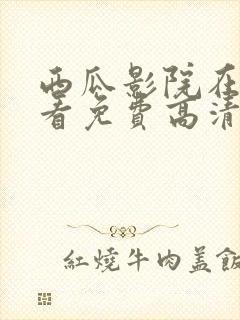 西瓜影院在
看免費高清
紅燒牛肉蓋飯